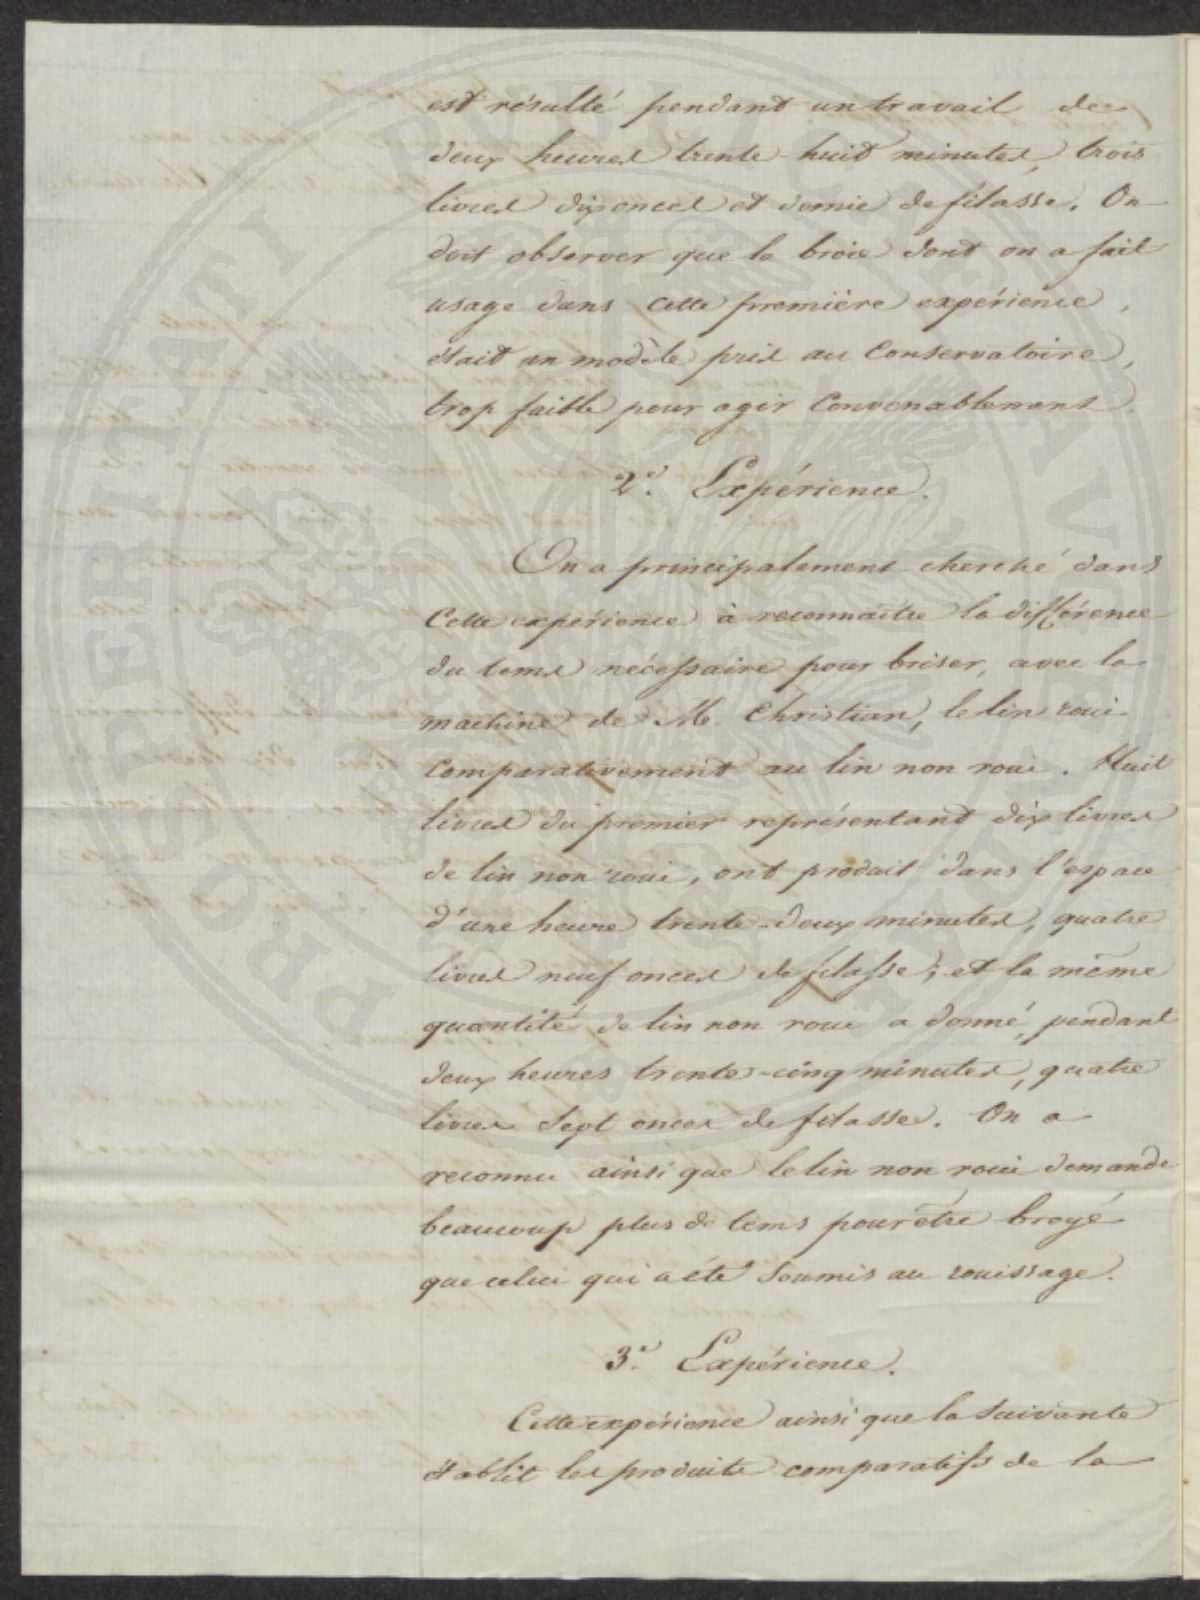 est résulté pendant un travail de
deux heures trente-huit minutes, trois
livres dix onces et demie de filasse. On
doit observer que la broie dont on a fait
usage dans cette première expérience,
était un modèle pris au Conservatoire,
trop faible pour agir Convenablement.
2e. Expérience.
On a principalement cherché dans
Cette expérience à reconnaître la différence
du tems nécessaire pour briser, avec la
machine de M. Christian, le lin roui
Comparativement au lin non roui. Huit
livres du premier représentant dix livres
de lin non roui, ont produit dans l'espace
d'une heure trente-deux minutes, quatre
livres neuf onces de filasse; et la même
quantité de lin non roui a donné, pendant
deux heures trente-cinq minutes, quatre
livres Sept onces de filasse. On a
reconnu ainsi que le lin non roui demande
beaucoup plus de tems pour être broyé
que celui qui a été Soumis au rouissage.
3e. Expérience.
Cette expérience ainsi que la Suivante
établit les produits comparatifs de la
PROSPERITATI PUBLICAE